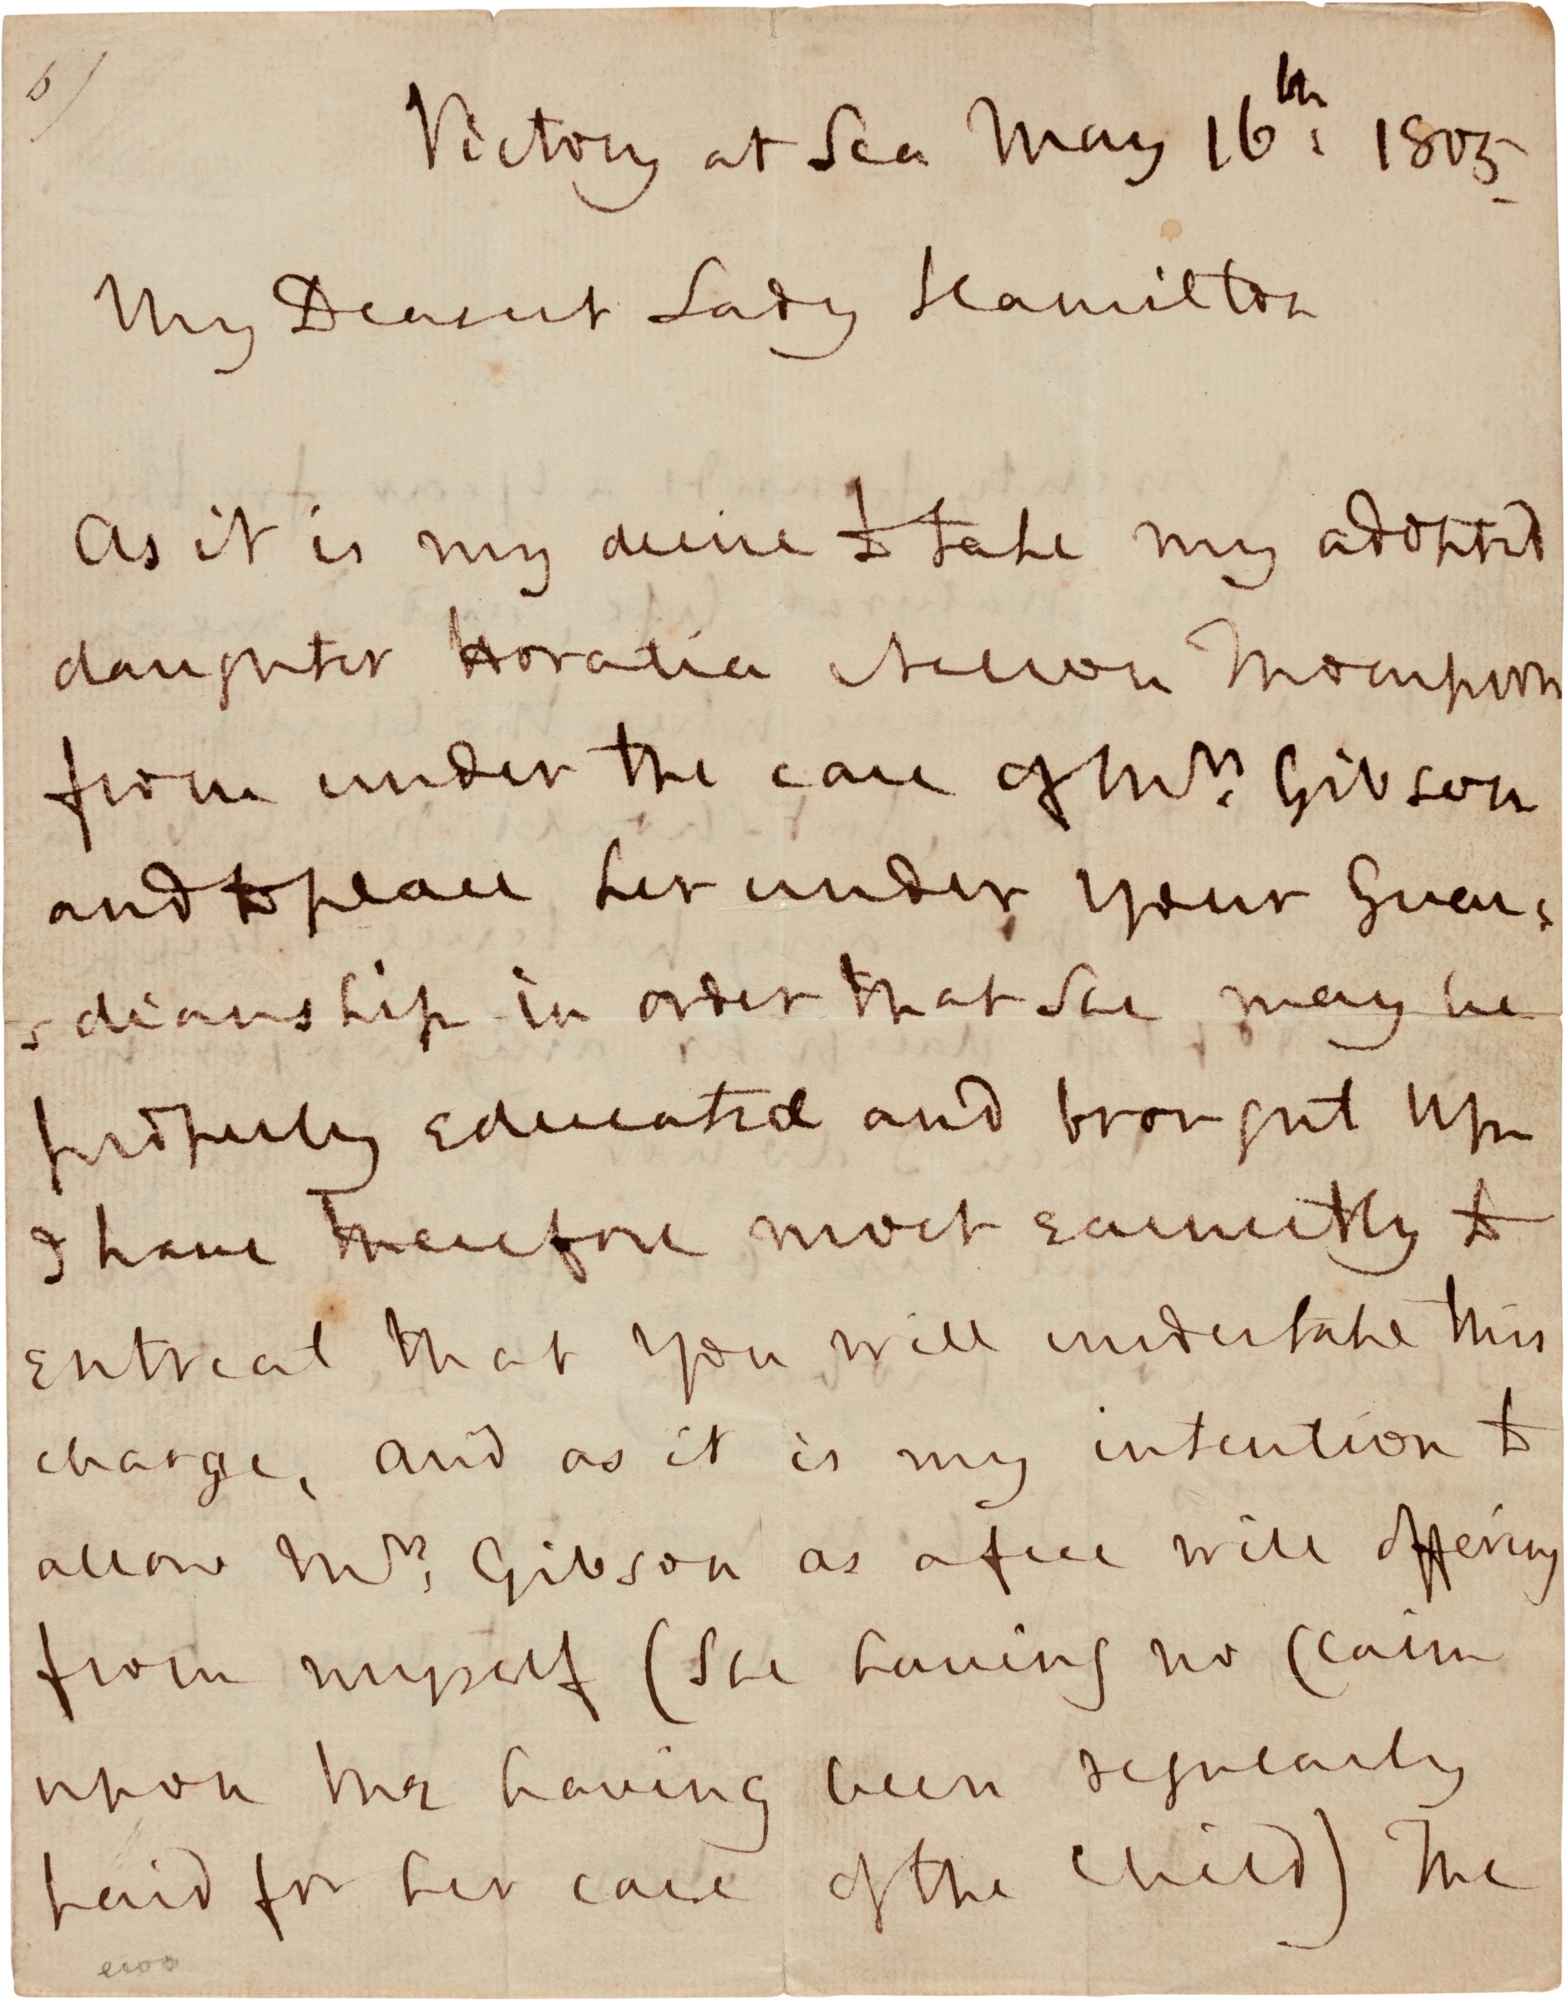 6)
Victory at Sea May 16th: 1805
My Dearest Lady Hamilton
As it is my desire to take my adopted
daughter Horatia Nelson Thompson
from under the care of Mrs: Gibson
and to place her under your Guar:
:dianship in order that She may be
properly educated and brought up
I have therefore most earnestly to
entreat that you will undertake this
charge, and as it is my intention to
allow Mrs: Gibson as a free will offering
from myself (She having no claim
upon me having been regularly
paid for her care of the Child) The